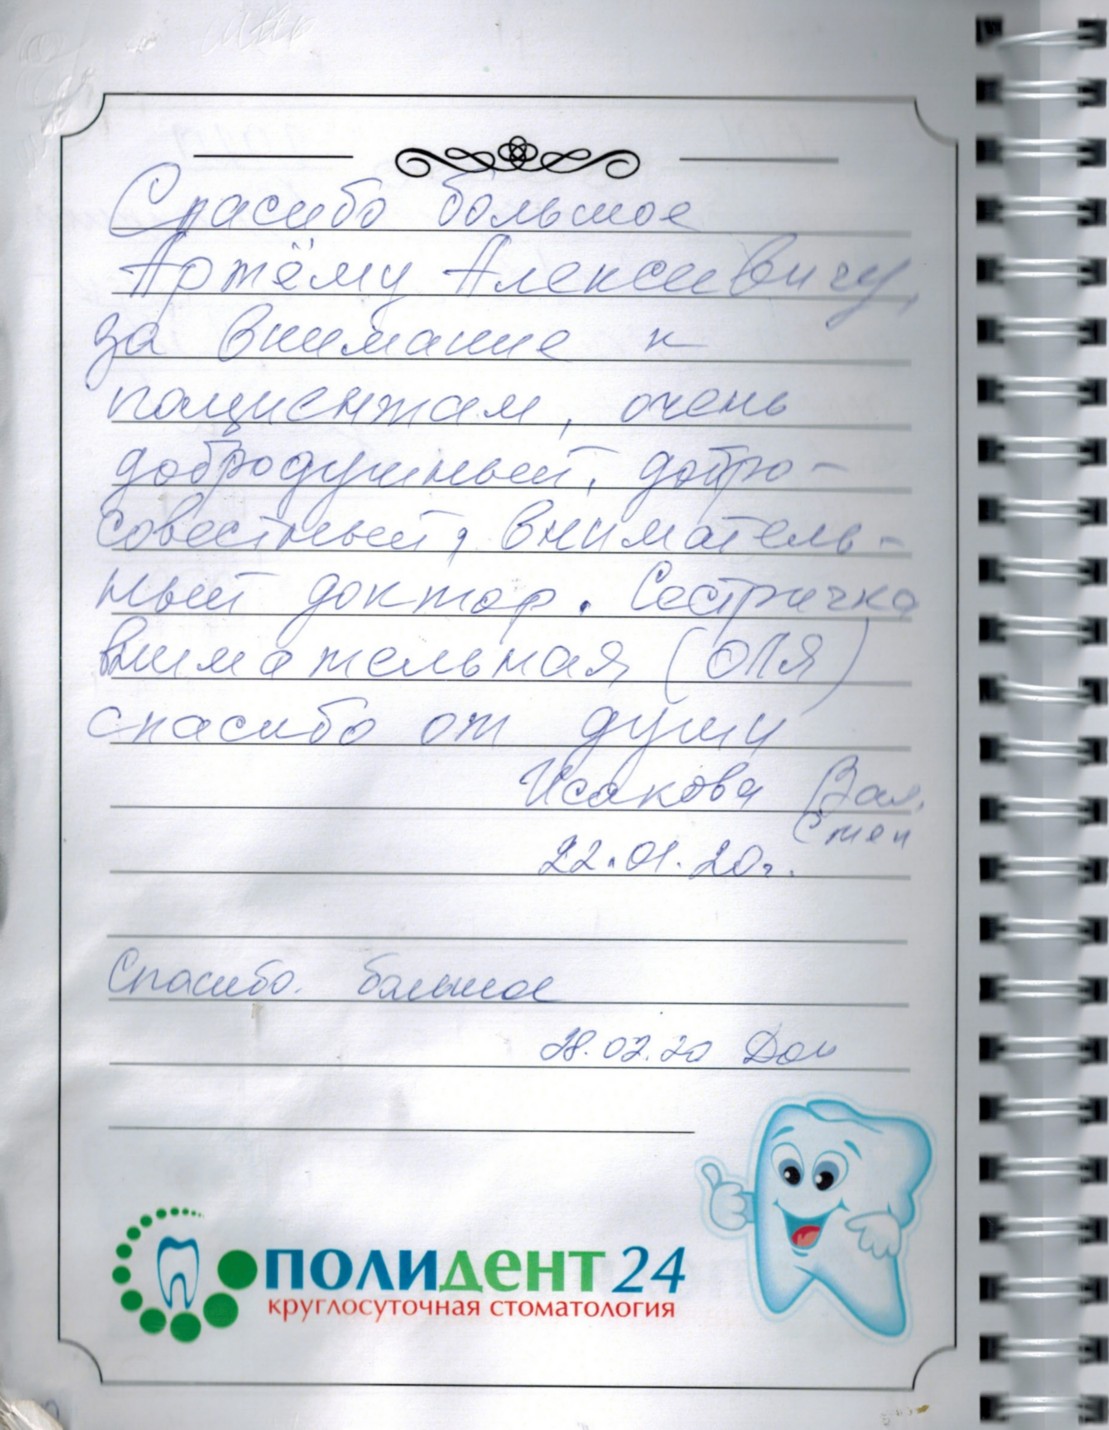 Спасибо большое
Артёму Алексеевичу,
за внимание к
пациентам, очень
добродушный, добро-
совестный, вниматель-
ный доктор. Сестричка
внимательная (Оля)
спасибо от души
Исакова Вал.
Степ
22.01.20г.
Спасибо. большое
28.02.20
ПОЛИДЕНТ 24
круглосуточная стоматология